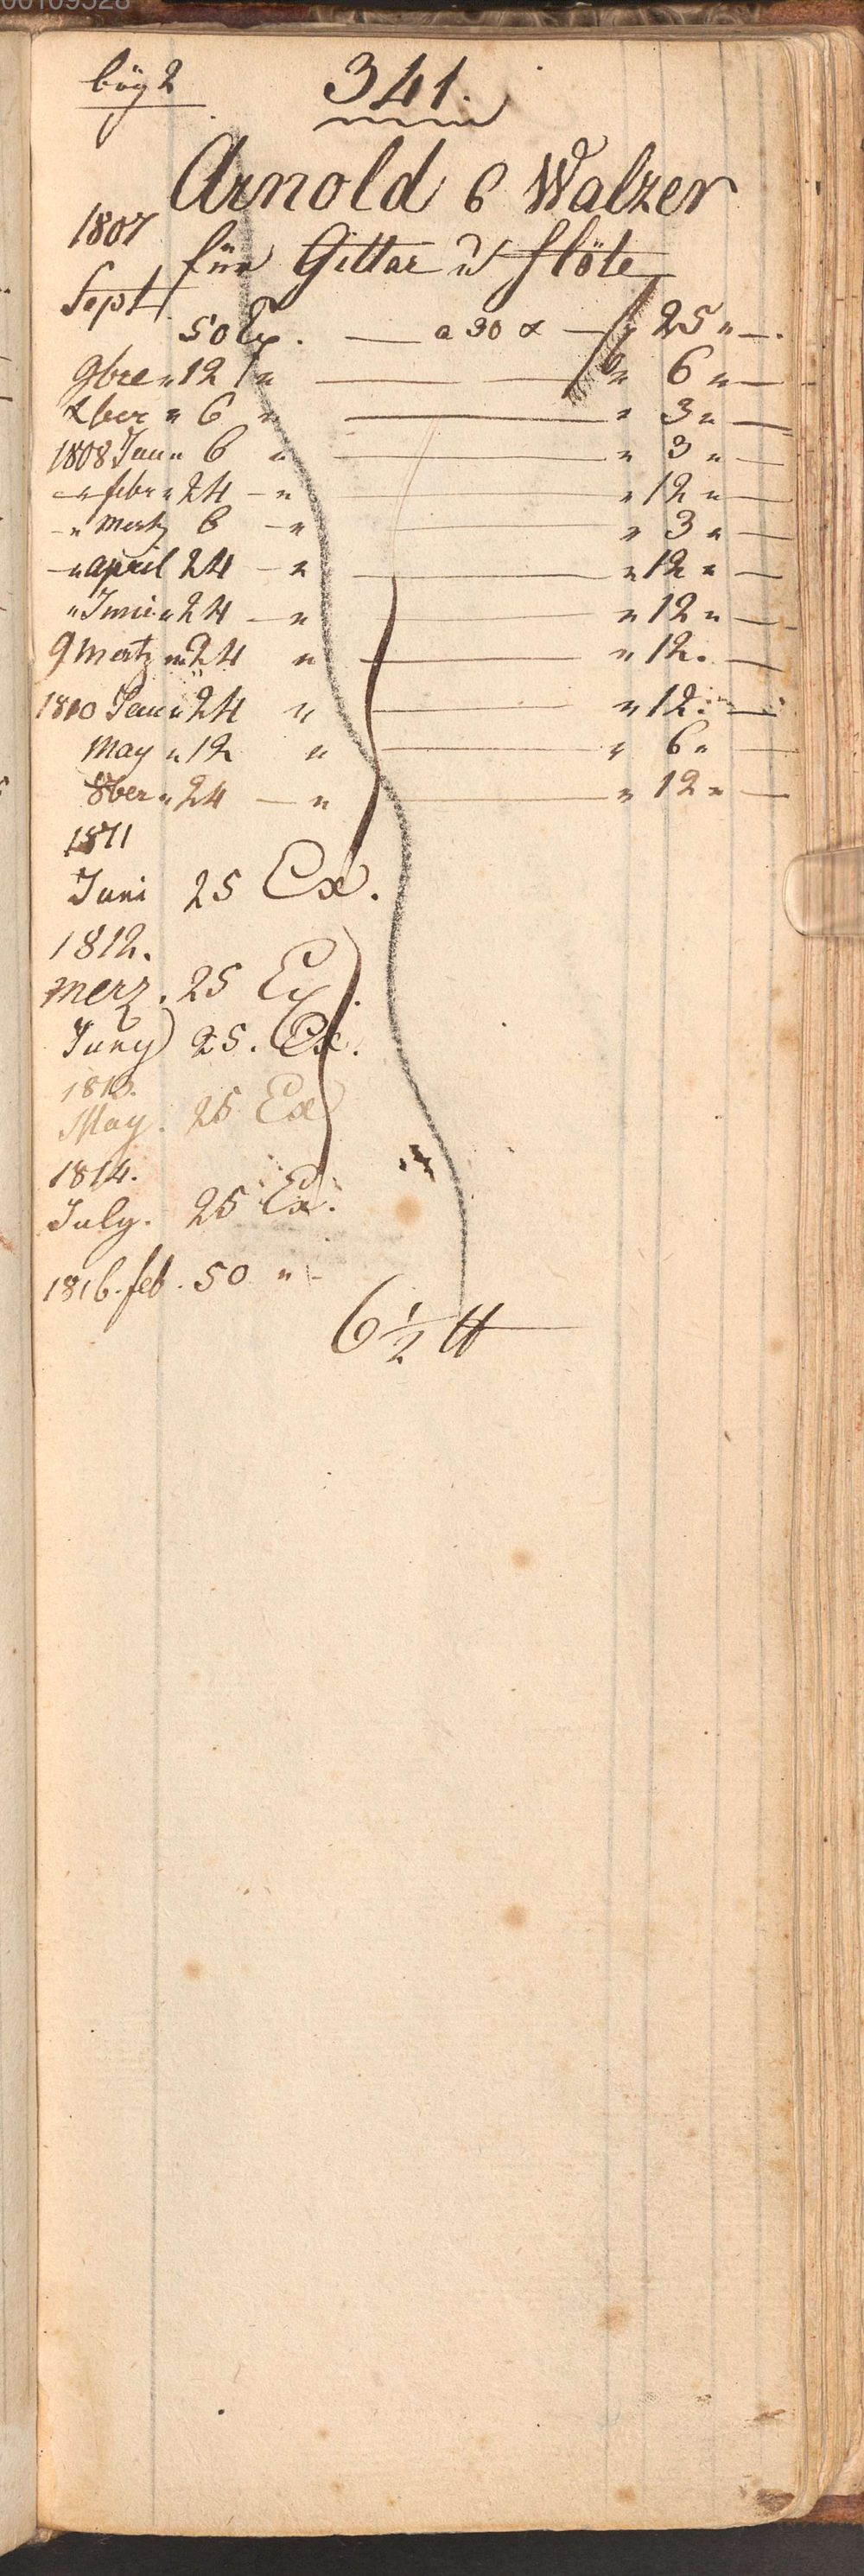 böge 2
341.
Arnold 6 Walzer
1807
für Gittar u flöte
Sept
50 Ex. — a 30 x — f 25 " —
9bre " 12 " — " 6 " —
Xber " 6 " — " 3 " —
1808 Jan " 6 " — " 3 " —
— " febr " 24 — " — " 12 " —
— " Mertz 6 — " — " 3 " —
— " april 24 — " — " 12 " —
" Juni " 24 — " — " 12 " —
9 Mertz " 24 " — " 12 . —
1810 Jan " 24 " — " 12 . —
May " 12 " — " 6 " —
8ber " 24 — " — " 12 " —
1811
Juni 25 Ex.
1812.
Merz. 25 Ex.
Juny 25. Ex.
1813.
May. 25 Ex
1814.
July. 25 Ex.
1816. feb. 50 " –
6 1/2 tt